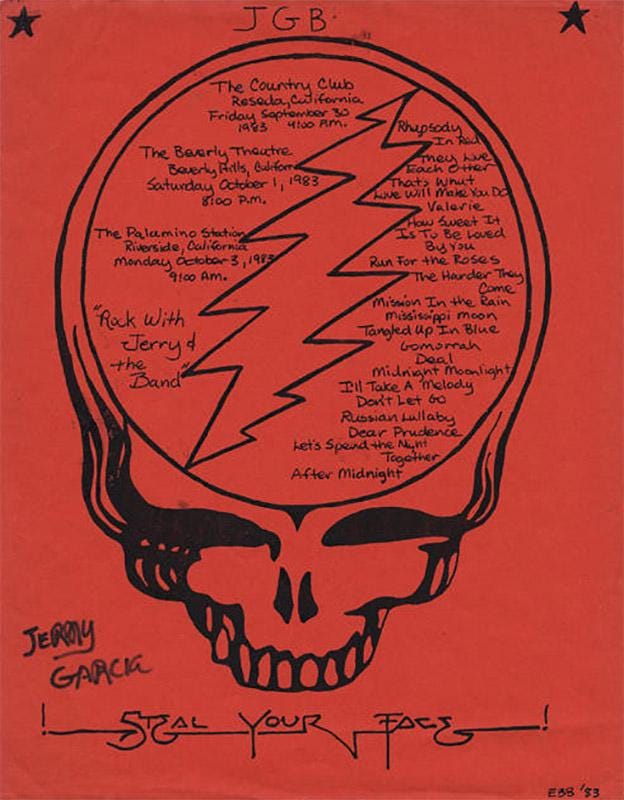 JGB.
The Country Club
Reseda, California
Friday September 30
1983 9:00 P.M.
The Beverly Theatre
Beverly Hills, California
Saturday October 1, 1983
8:00 P.M.
The Palamino Station
Riverside, California
Monday October 3, 1983
9:00 A.M.
"Rock With
Jerry &
the
Band"
Rhapsody
In Red
They Love
Each Other
That's What
Love Will Make You Do
Valerie
How Sweet It
Is To Be Loved
By You
Run For the Roses
The Harder They
Come
Mission In the Rain
Mississippi Moon
Tangled Up In Blue
Gomorrah
Deal
Midnight Moonlight
I'll Take A Melody
Don't Let Go
Russian Lullaby
Dear Prudence
Let's Spend the Night
Together
After Midnight
JERRY
GARCIA
! STEAL YOUR FACE !
EBB '83